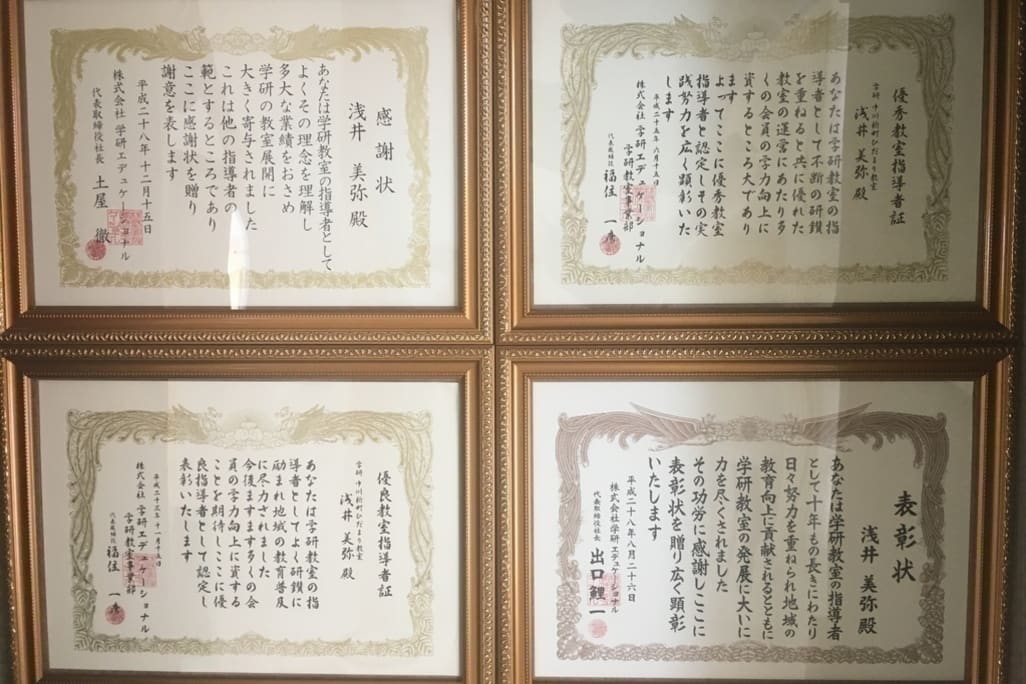 感謝状
浅井 美弥 殿
あなたは学研教室の指導者として
よくその理念を理解し
多大な業績をおさめ
学研の教室展開に
大きく寄与されました
これは他の指導者の
範とするところであり
ここに感謝状を贈り
謝意を表します
平成二十八年十二月十五日
株式会社 学研エデュケーショナル
代表取締役社長 土屋 徹
優秀教室指導者証
学研 中川新町ひだまり教室
浅井 美弥 殿
あなたは学研教室の指
導者として不断の研鑽
を重ねると共に優れた
教室の運営にあたり多
くの会員の学力向上に
資するところ大であり
ます
よってここに優秀教室
指導者と認定しその実
践努力を広く顕彰いた
します
平成二十五年六月十五日
株式会社 学研エデュケーショナル
学研教室事業部
代表取締役 福住 一彦
優良教室指導者証
学研 中川新町ひだまり教室
浅井 美弥 殿
あなたは学研教室の指
導者としてよく研鑽に
励まれ地域の教育普及
に尽力されました
今後ますます多くの会
員の学力向上に資する
ことを期待しここに優
良指導者として認定し
表彰いたします
平成二十三年十一月十五日
株式会社 学研エデュケーショナル
学研教室事業部
代表取締役 福住 一彦
表彰状
浅井 美弥殿
あなたは学研教室の指導者
として十年もの長きにわたり
日々努力を重ねられ地域の
教育向上に貢献されるとともに
学研教室の発展に大いに
力を尽くされました
その功労に感謝しここに
表彰状を贈り広く顕彰
いたします
平成二十八年八月二十六日
株式会社学研エデュケーショナル
代表取締役社長 出口 鯉一